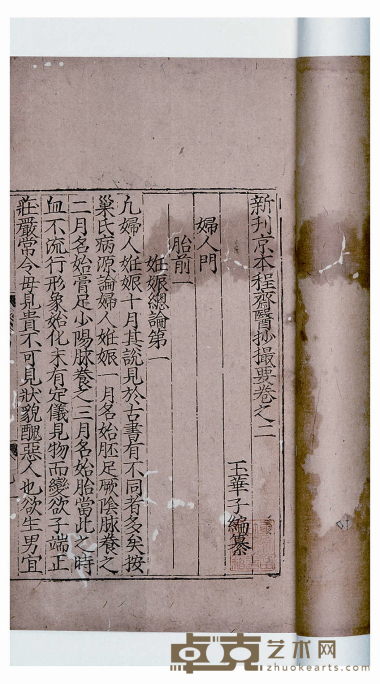 新刊京本程齋醫抄撮要卷之二
玉華子編纂
婦人門
胎前一
妊娠總論第一
凡婦人妊娠十月其說見於古書有不同者多矣按
巢氏病源論婦人妊娠一月名始胚足厥陰脉養之
二月名始膏足少陽脉養之三月名始胎當此之時
血不流行形象始化未有定儀見物而變欲子端正
莊嚴常令母見貴不可見狀貌醜惡人也欲生男宜
卓克艺术网
zhuokearts.com